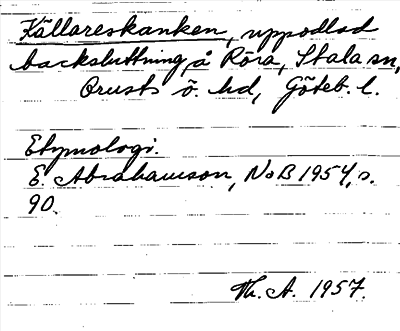 Källareskanken, uppodlad
backsluttning, å Röra, Stala sn,
Orusts ö. hd, Göteb. l.
Etymologi.
E. Abrahamson, NoB 1954, s.
90.
Th. A. 1957.